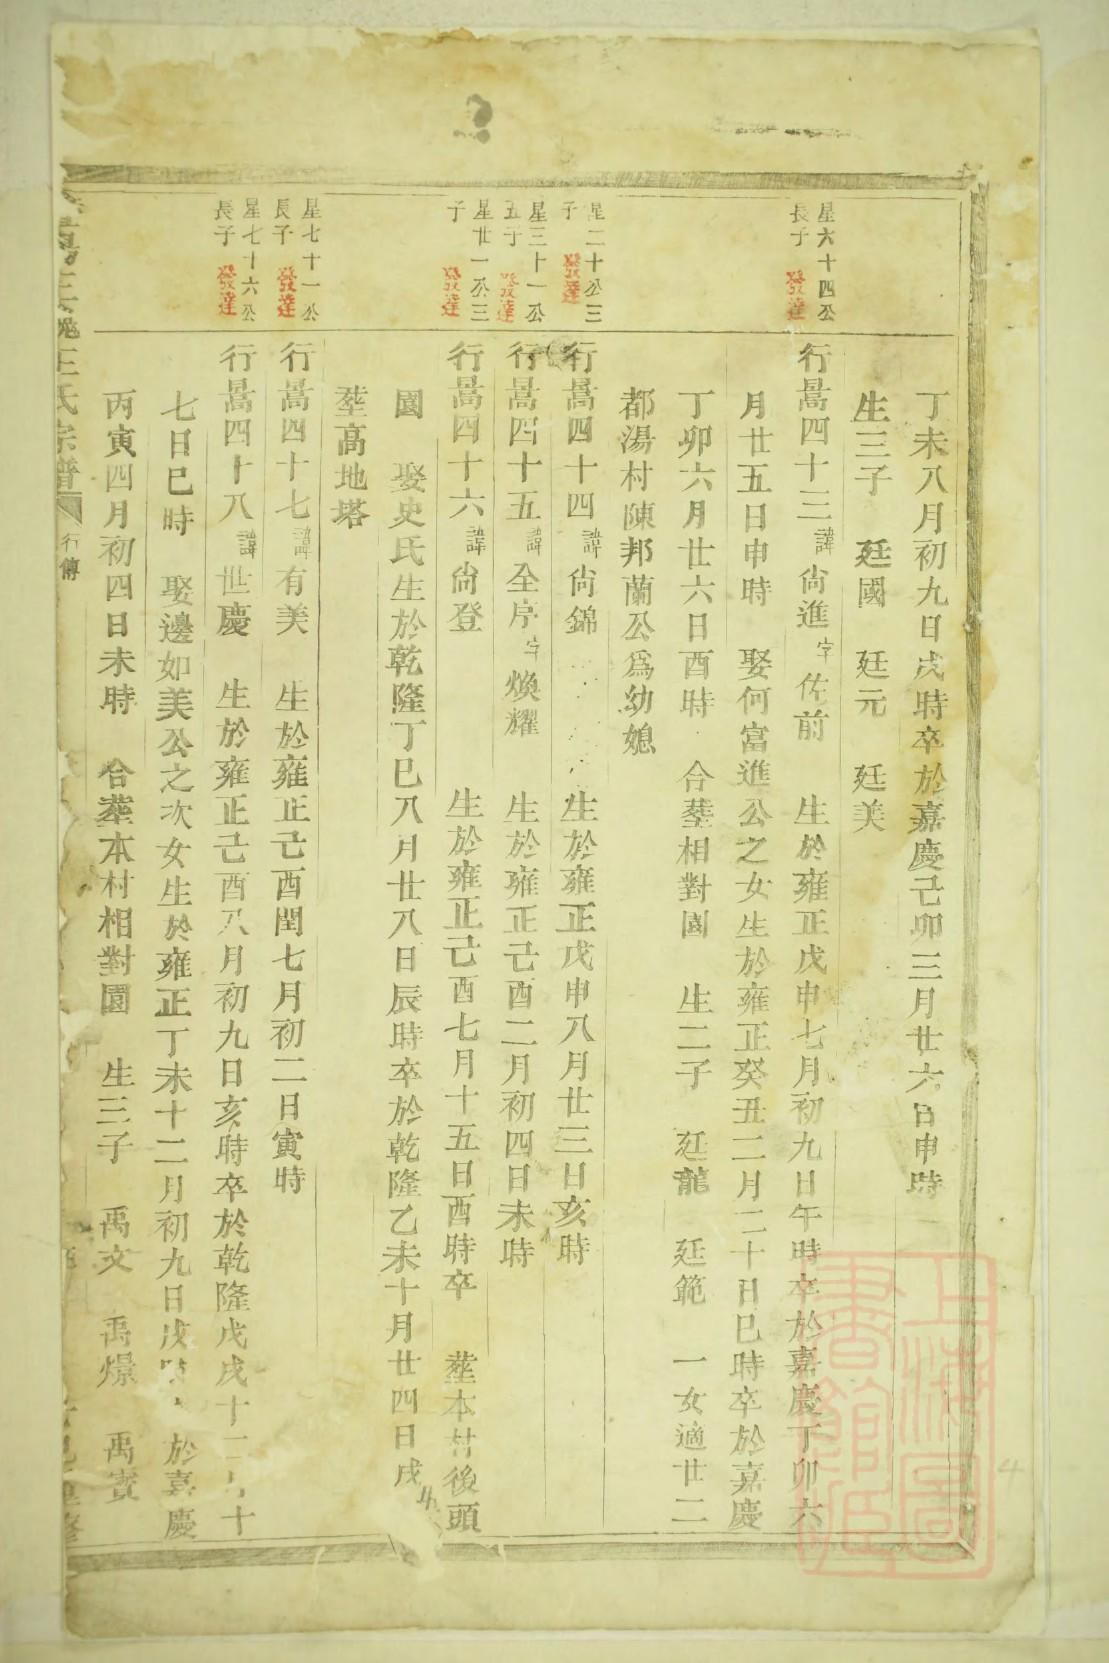 丁未八月初九日戌時卒於嘉慶己卯三月廿六日申時
生三子　廷國　廷元　廷美
星六十四公
長子　發達
行暠四十三諱尙進字佐前　生於雍正戊申七月初九日午時卒於嘉慶丁卯六
月廿五日申時　娶何富進公之女生於雍正癸丑二月二十日巳時卒於嘉慶
丁卯六月廿六日酉時　合塟相對園　生二子　廷龍　廷範　一女適廿二
都湯村陳邦蘭公爲幼媳
星二十公三
子　發達
行暠四十四諱尙錦　生於雍正戊申八月廿三日亥時
星三十一公
五子　發達
行暠四十五諱全序字煥耀　生於雍正己酉二月初四日未時
星廿一公三
子　發達
行暠四十六諱尙登　生於雍正己酉七月十五日酉時卒　塟本村後頭
園　娶史氏生於乾隆丁巳八月廿八日辰時卒於乾隆乙未十月廿四日戌
塟高地塔
星七十一公
長子　發達
行暠四十七諱有美　生於雍正己酉閏七月初二日寅時
星七十六公
長子　發達
行暠四十八諱世慶　生於雍正己酉八月初九日亥時卒於乾隆戊戌十二月十
七日巳時　娶邊如美公之次女生於雍正丁未十二月初九日戌　於嘉慶
丙寅四月初四日未時　合塟本村相對園　生三子　禹文　禹燝　禹賓
王氏宗譜　行傳
上海圖
書館藏